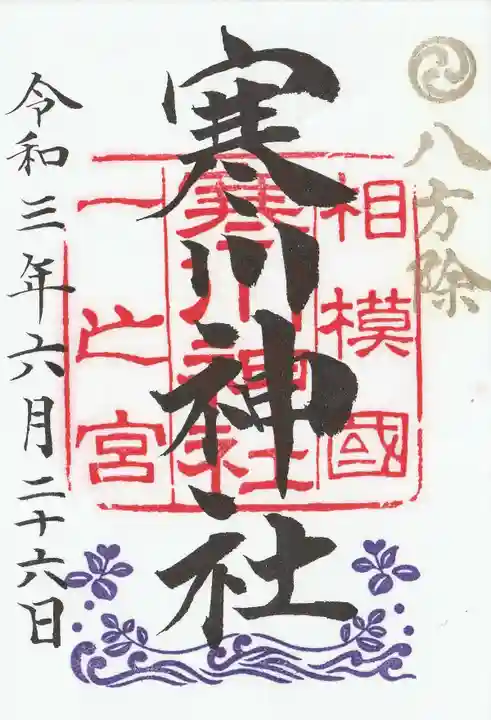 八方除
相模國
寒川神社
一之宮
寒川神社
令和三年六月二十六日